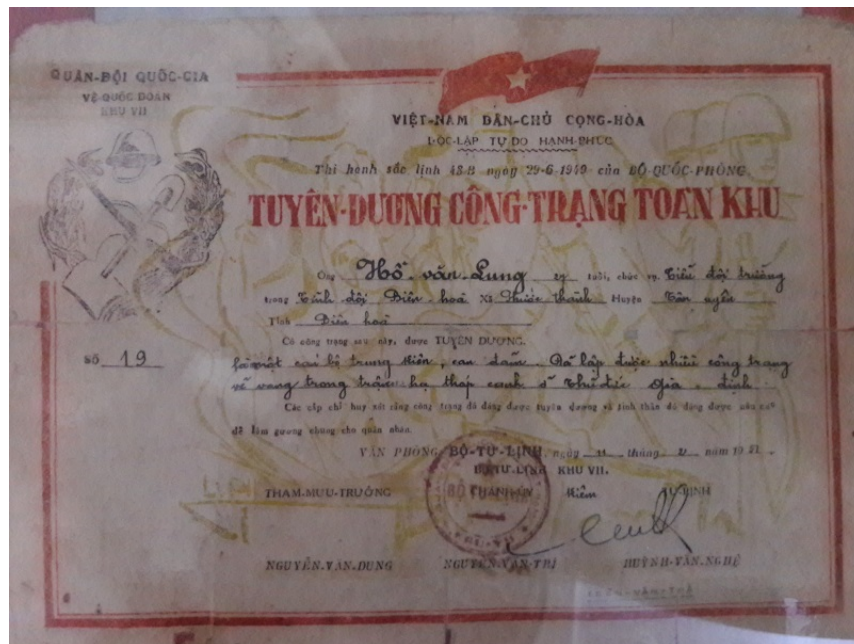 QUÂN-ĐỘI QUỐC-GIA
VỆ-QUỐC ĐOÀN
KHU VII
VIỆT-NAM DÂN-CHỦ CỘNG-HÒA
ĐỘC-LẬP TỰ-DO HẠNH-PHÚC
Thi hành sắc lịnh 43B ngày 29-6-1949 của BỘ-QUỐC-PHÒNG
TUYÊN-DƯƠNG CÔNG-TRẠNG TOÀN KHU
Ông Hồ văn Lung 27 tuổi, chức vụ Tiểu đội trưởng
trong Tỉnh đội Biên hoà Xã Phước thành Huyện Tân uyên
Tỉnh Biên hoà
Có công trạng sau này, được TUYÊN DƯƠNG.
SỐ 19
Là một cán bộ trung kiên, can đảm. Đã lập được nhiều công trạng
vẻ vang trong trận hạ tháp canh ở Thủ đức Gia định
Các cấp chỉ huy xét rằng công trạng đó đáng được tuyên dương và tinh thần đó đáng được nêu cao
để làm gương chung cho quân nhân.
VĂN PHÒNG BỘ-TƯ-LỊNH, ngày tháng năm 19
BỘ-TƯ-LỊNH KHU VII.
THAM-MƯU-TRƯỞNG
Kiêm TƯ-LỊNH
NGUYỄN-VĂN-DUNG NGUYỄN-VĂN-TRÍ HUỲNH-VĂN-NGHỆ